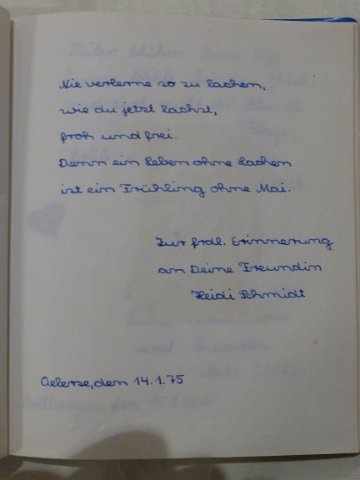 Nie verlerne so zu lachen,
wie du jetzt lachst,
froh und frei.
Denn ein Leben ohne Lachen
ist ein Frühling ohne Mai.
Zur frdl. Erinnerung
an Deine Freundin
Heidi Schmidt
Oelerse, den 14.1.75